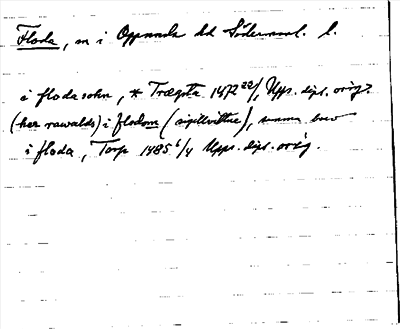 Floda, sn i Oppunda hd Södermanl. l.
i flodasokn, * Trægsta 1472 22/, Upps. dipl. orig.
(her rawalds) i flodom (sigillvittne), samma brev
i floda, Torp 1485 6/4 Upps. dipl. orig.